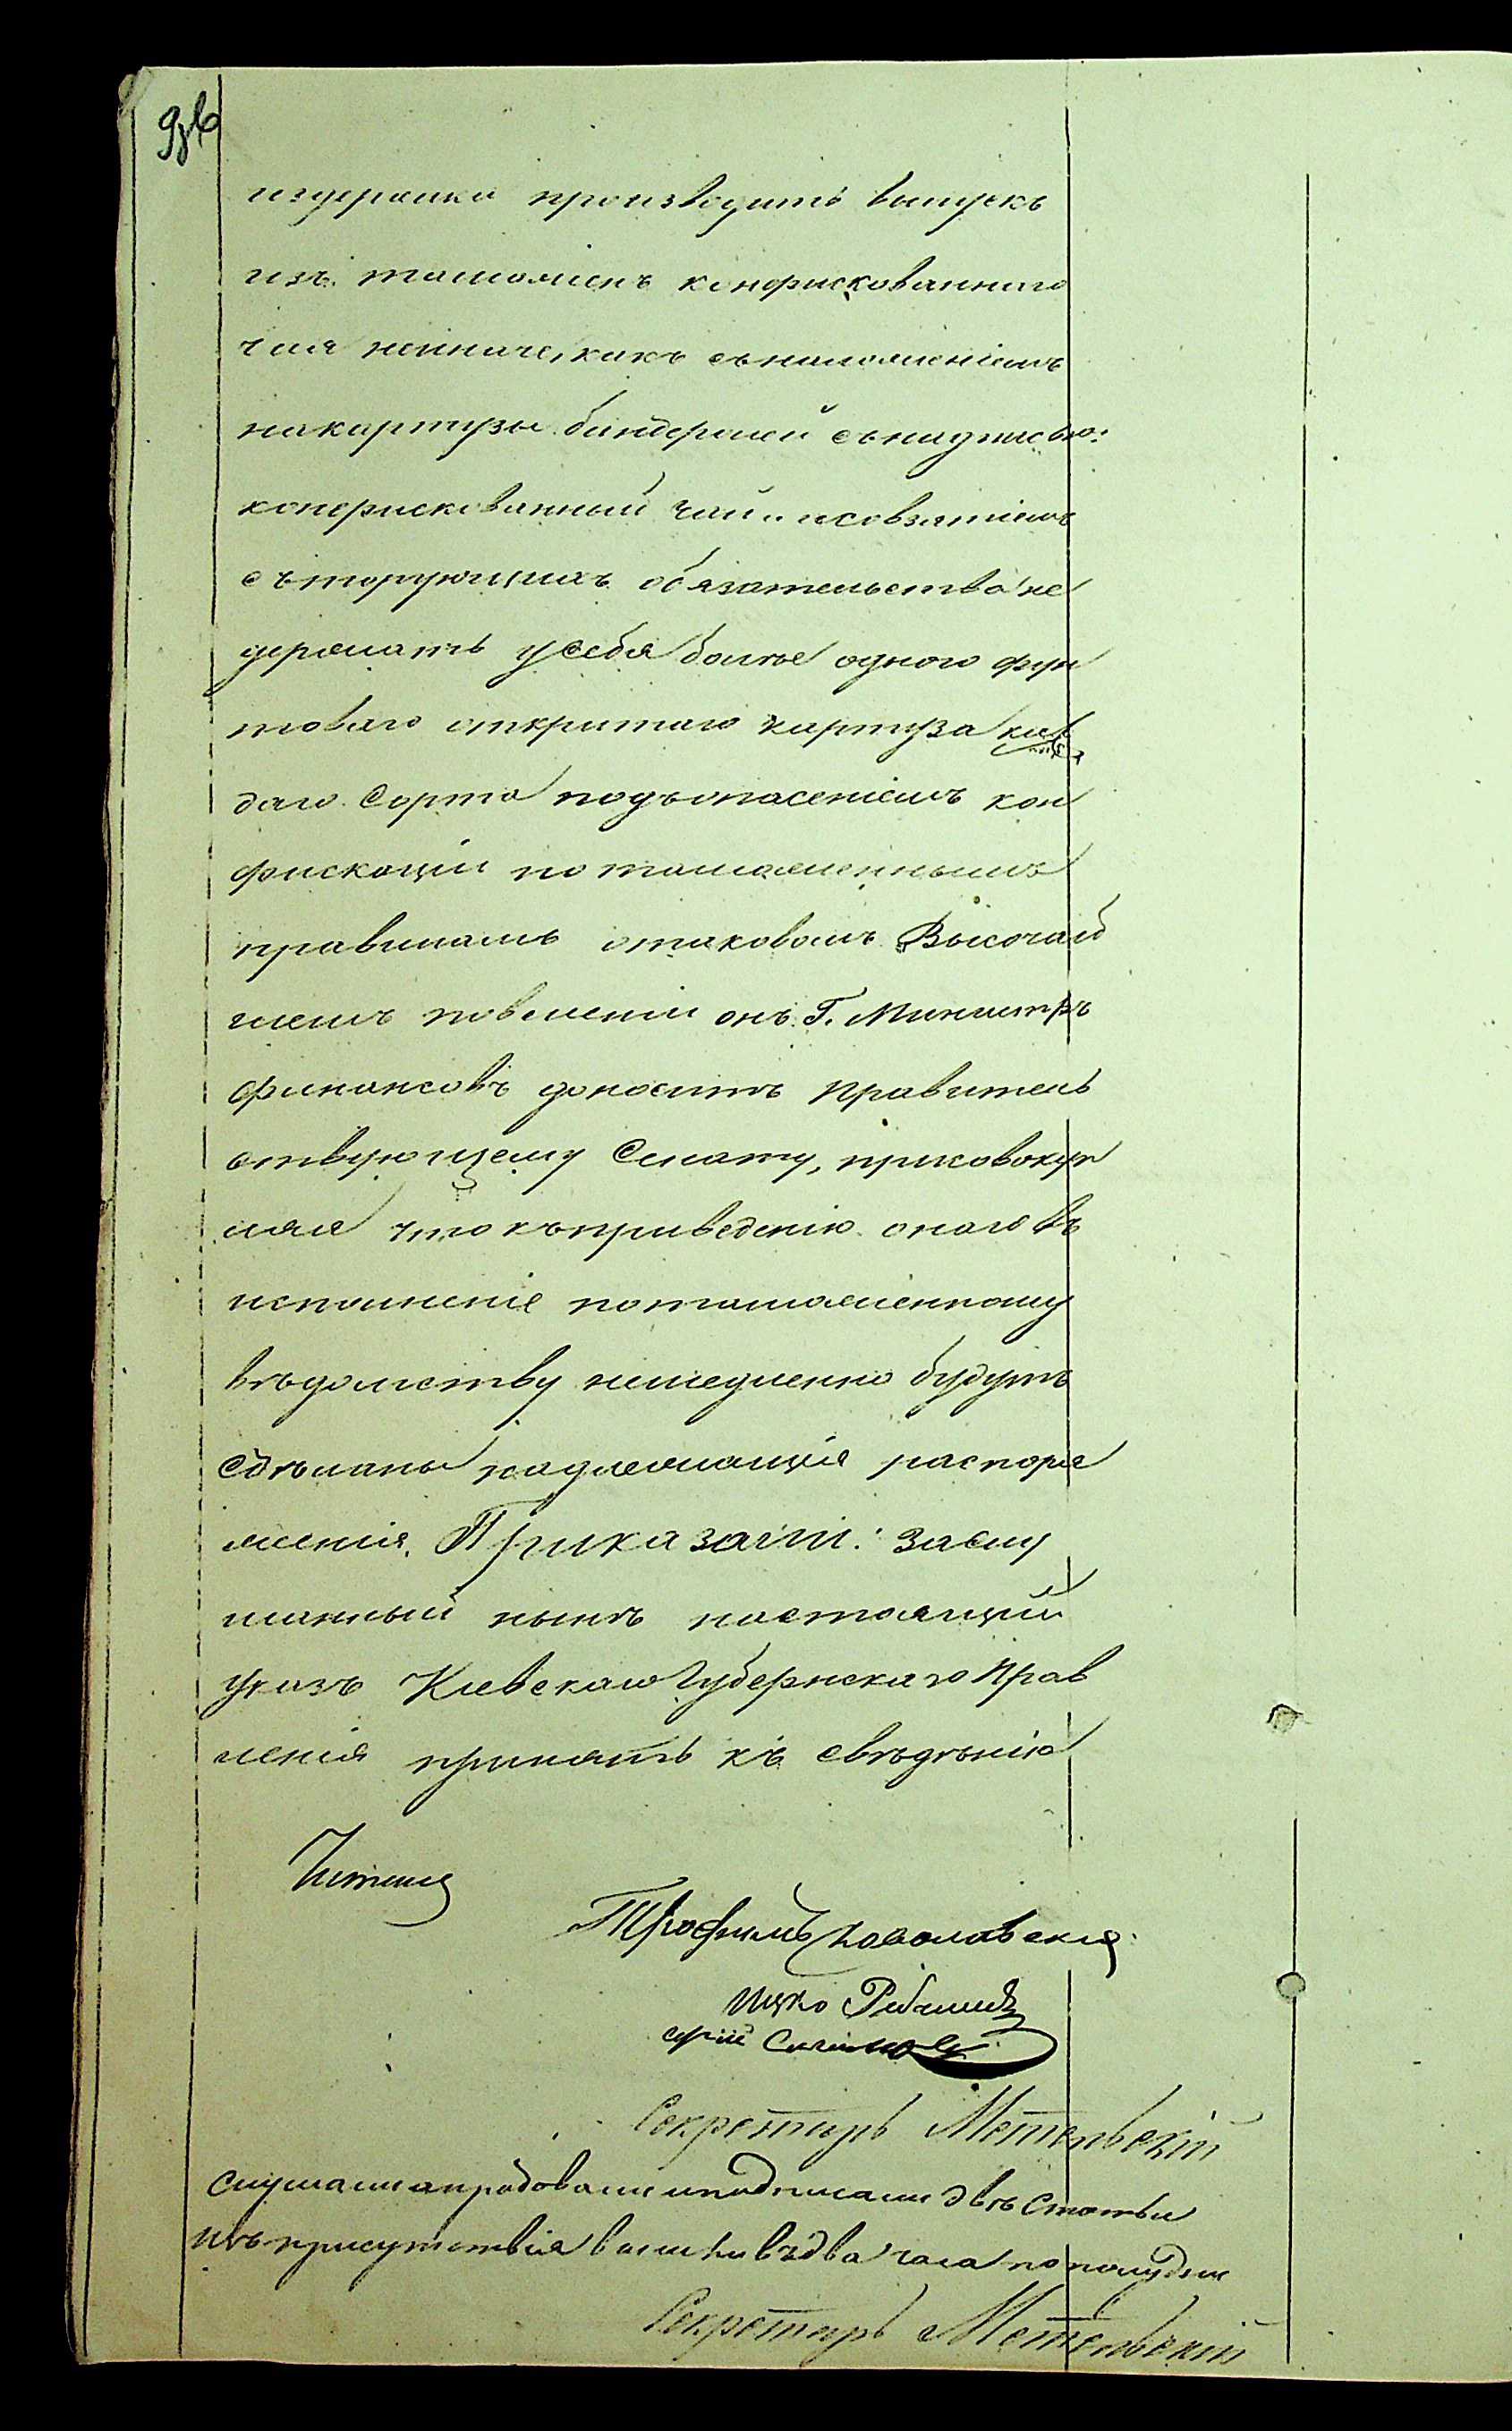 издержки производить выпускъ
изъ таможенъ конфискованнаго
чая неиначе, какъ съ наложеніемъ
на картузы бандеролей съ надписью:
конфискованный чай и со взятіемъ
съ торгующихъ обязательства не
держать у себя более одного фун
товаго открытаго картуза каж
даго сорта подъ опасеніемъ кон
фискаціи по таможеннымъ
правиламъ отаковомъ Высочай
шемъ повеленіи онъ Г. Министръ
финансовъ доноситъ Правитель
ствующему Сенату, присовокуп
ляя что къ приведенію онаго въ
исполненіе по таможенному
вѣдомству немедленно будутъ
сдѣланы надлежащія распоря
женія. Приказали: заслу
шанный нынѣ настоящій
указъ Кіевскаго Губернскаго Прав
ленія принять къ свѣдѣнію
Трофимъ
Ицко
Секретарь Метельскій
слушали апробовали и подписали двѣ статьи
изъ присутствія вышли въ два часа по полудни
Секретарь Метельскій